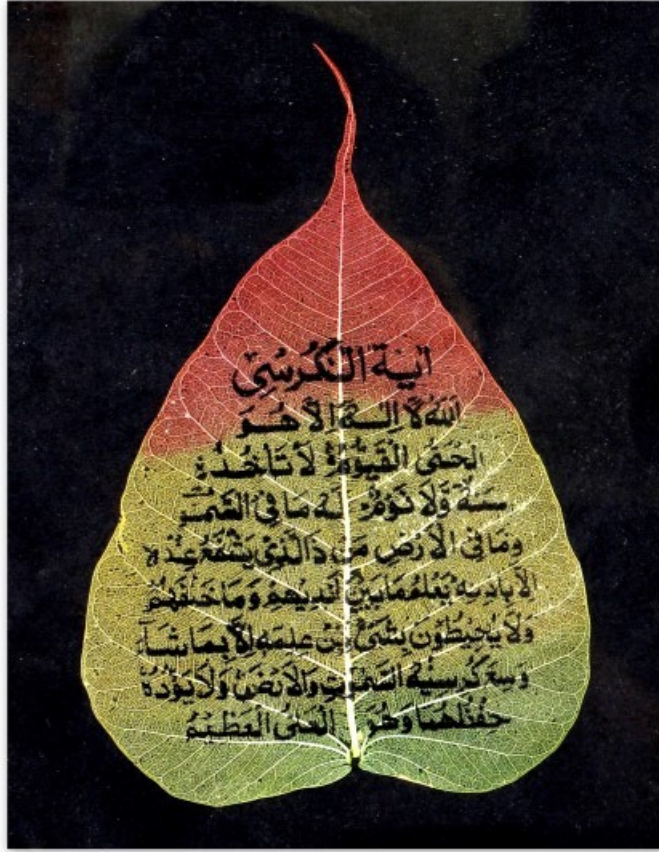 اٰية الكُرسِى
اَللّٰهُ لَآ اِلٰـهَ اِلَّا هُـوَ
الحَىُّ القَيُّوْمُ ۚ لَا تَاْخُذُهٗ
سِنَةٌ وَّلَا نَوْمٌ ۚ لَهٗ مَا فِى السَّمٰوٰتِ
وَمَا فِى الْاَرْضِ مَنْ ذَا الَّذِىْ يَشْفَعُ عِنْدَهٗ
اِلَّا بِاِذْنِهٖ يَعْلَمُ مَا بَيْنَ اَيْدِيْهِمْ وَمَا خَلْفَهُمْ
وَلَا يُحِيْطُوْنَ بِشَىْءٍ مِّنْ عِلْمِهٖ اِلَّا بِمَا شَآءَ
وَسِعَ كُرْسِيُّهُ السَّمٰوٰتِ وَالْاَرْضَ وَلَا يَؤُدُهٗ
حِفْظُهُمَا وَهُوَ الْعَلِىُّ الْعَظِيْمُ